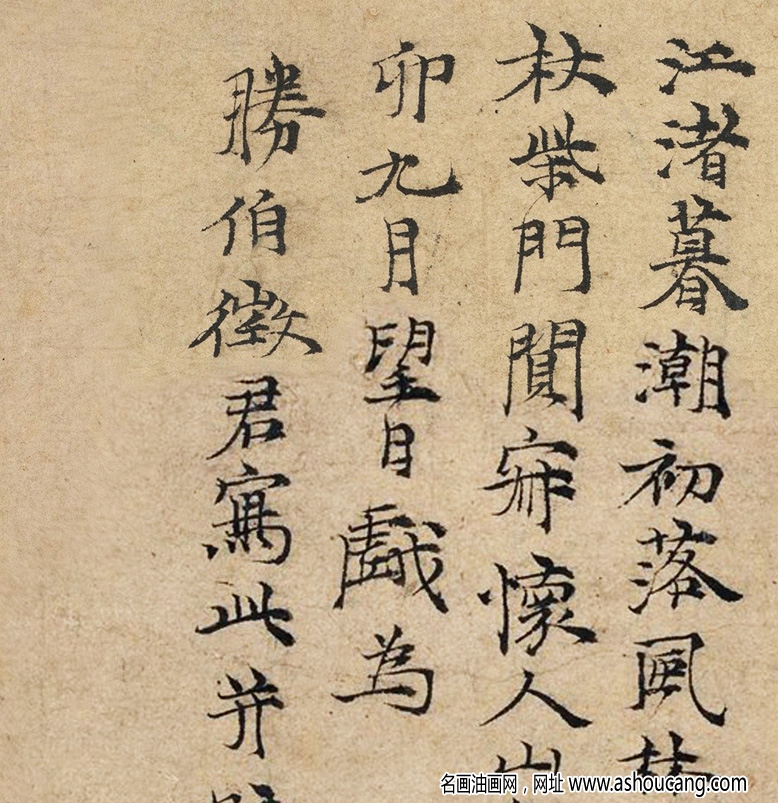 江渚暮潮初落風林
杖柴門閴寂懷人山
卯九月望日戲為
勝伯徵君寫此并
名画油画网，网址 www.ashoucang.com